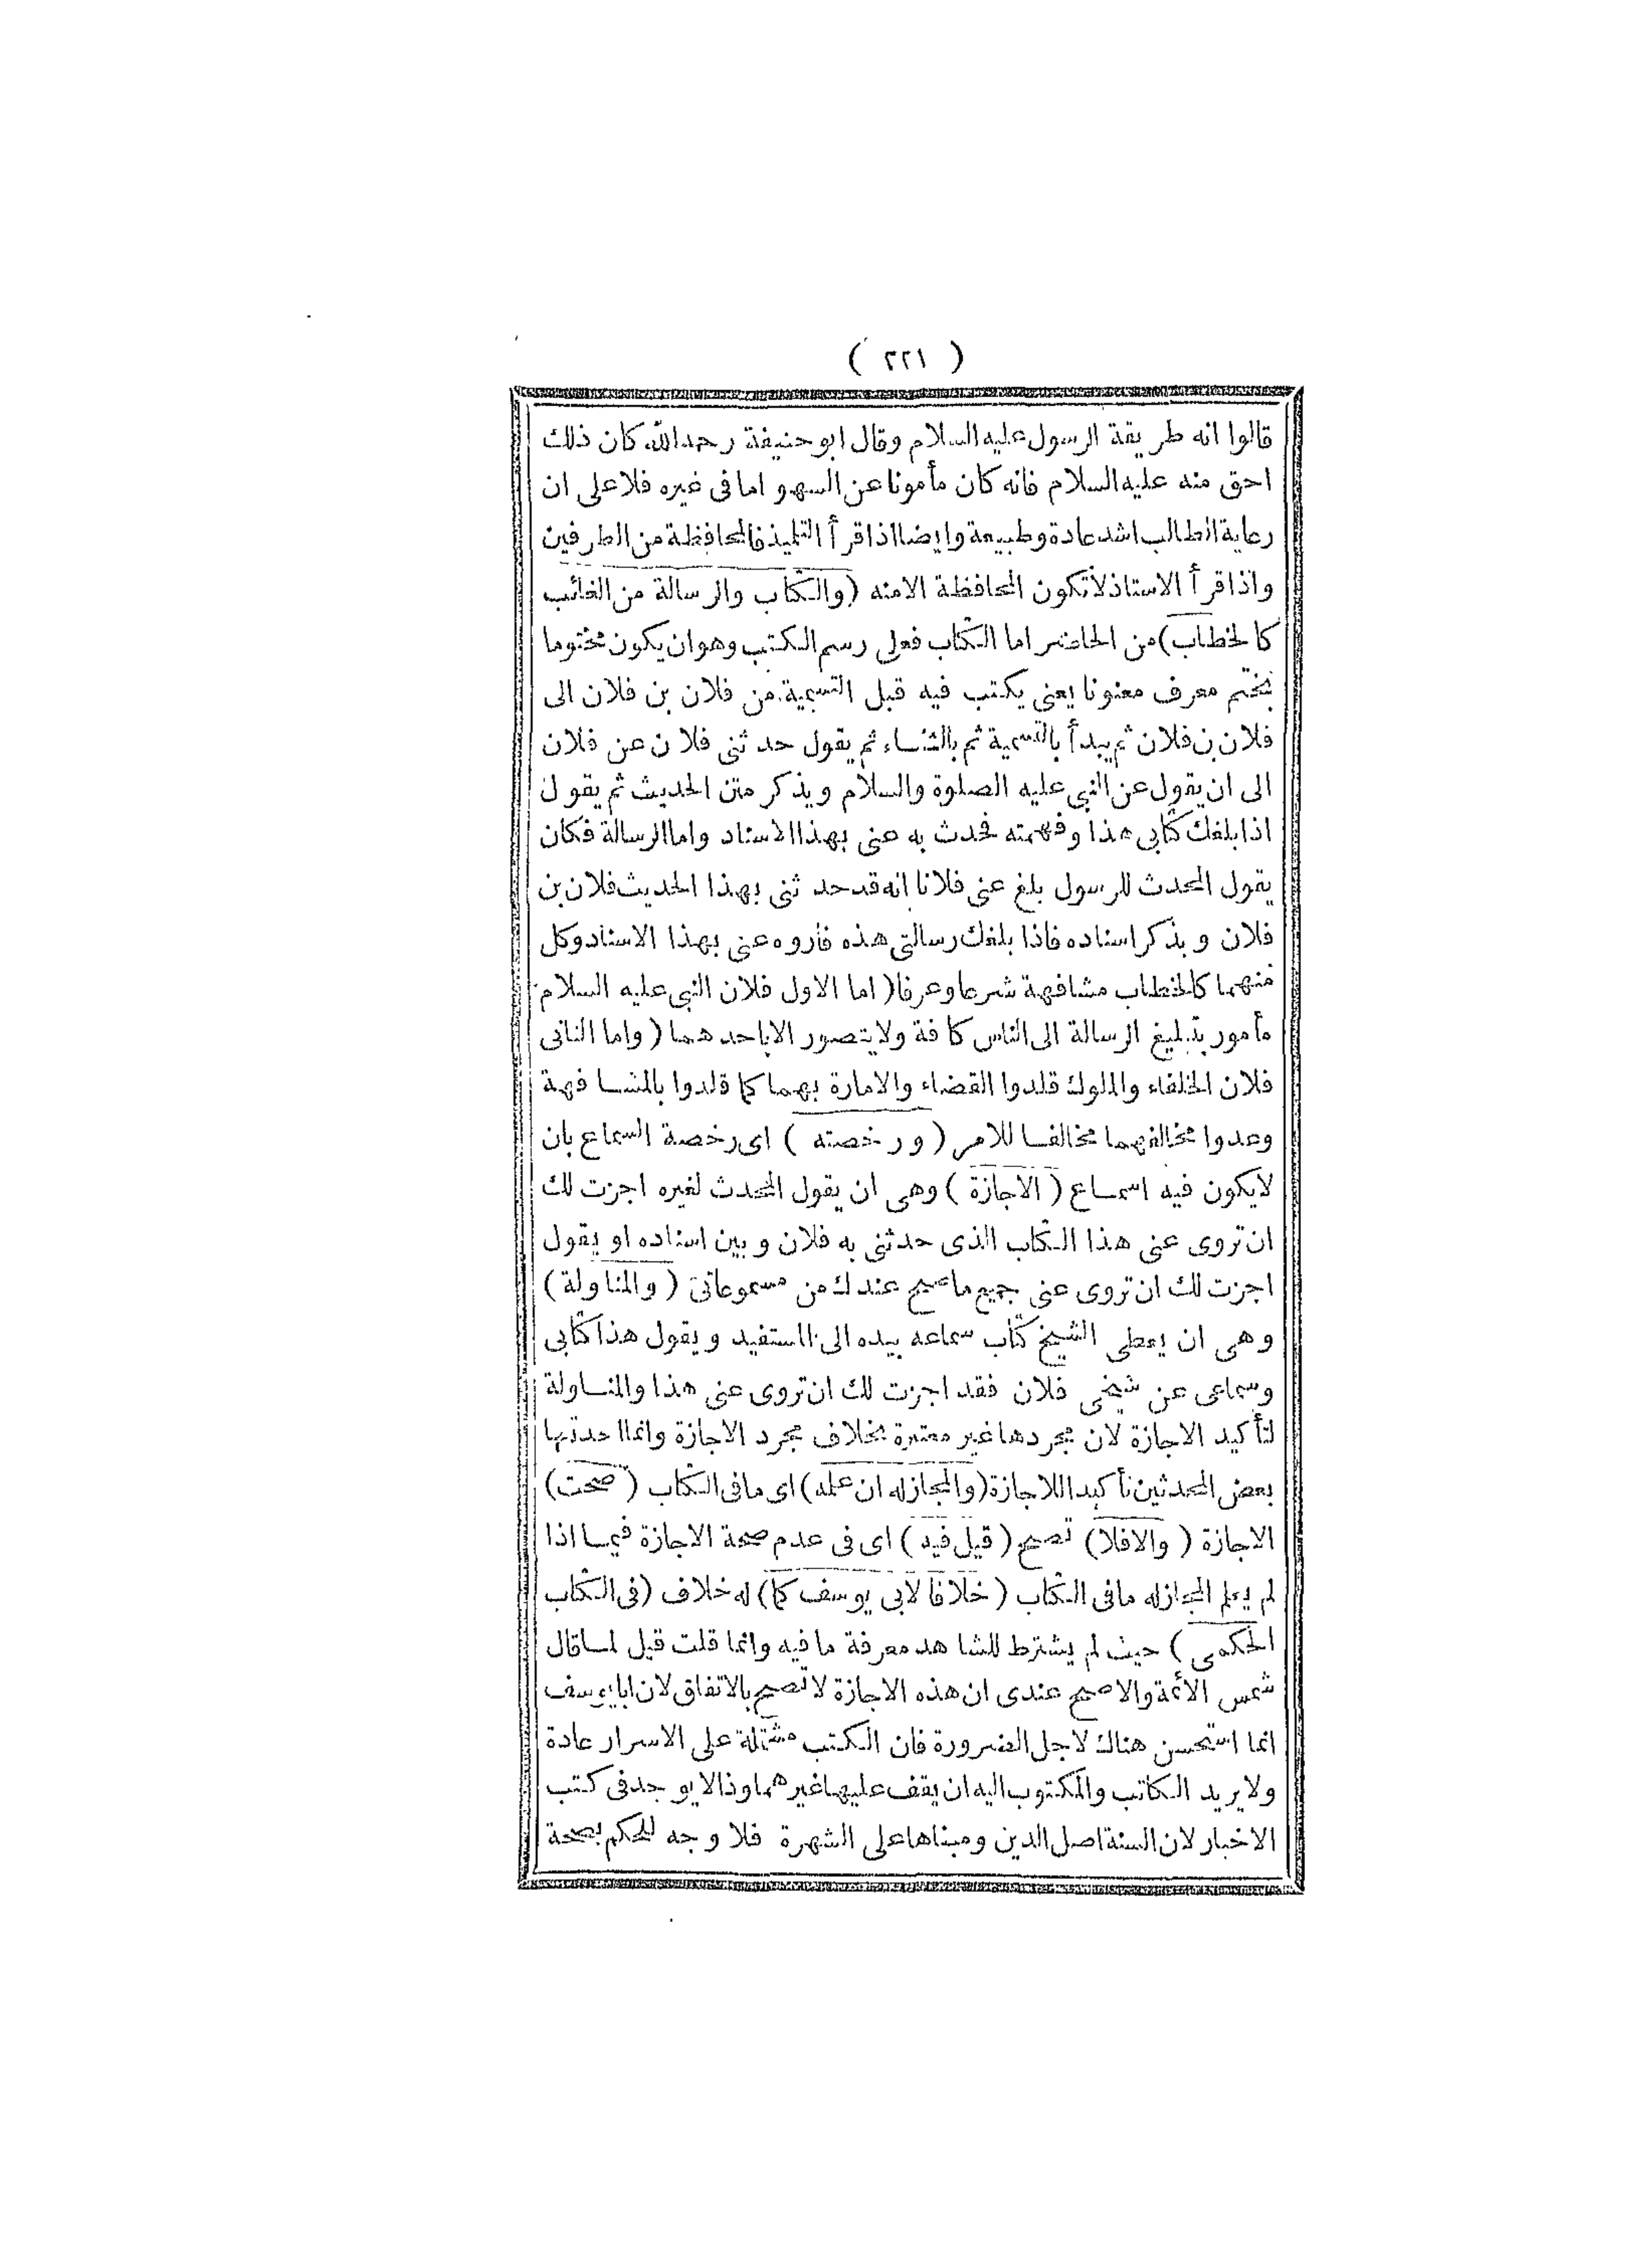 ( ٢٢١ )
قالوا انه طريقة الرسول عليه السلام وقال ابو حنيفة رحمه الله كان ذلك
احق منه عليه السلام فانه كان مأمونا عن السهو اما فى غيره فلا على ان
رعاية الطالب اشد عادة وطبيعة وايضا اذا قرأ التليذ فالمحافظة من الطرفين
واذا قرأ الاستاذ لاتكون المحافظة الامنه (والكتاب والرسالة من الغائب
كالخطاب) من الحاضر اما الكتاب فعلى رسم الكتب وهو ان يكون مختوما
بختم معرف معنونا يعنى يكتب فيه قبل التسمية من فلان بن فلان الى
فلان بن فلان ثم يبدأ بالتسمية ثم بالثناء ثم يقول حدثنى فلان عن فلان
الى ان يقول عن النبى عليه الصلوة والسلام ويذكر متن الحديث ثم يقول
اذا بلغك كتابى هذا وفهمته فحدث به عنى بهذا الاسناد واما الرسالة فكان
يقول المحدث للرسول بلغ عنى فلانا انه قد حدثنى بهذا الحديث فلان بن
فلان ويذكر اسناده فاذا بلغك رسالتى هذه فاروه عنى بهذا الاسناد وكل
منهما كالخطاب مشافهة شرعا وعرفا ( اما الاول فلان النبى عليه السلام
مأمور بتبليغ الرسالة الى الناس كافة ولا يتصور الا باحدهما ( واما الثانى
فلان الخلفاء والملوك قلدوا القضاء والامارة بهما كما قلدوا بالمشافهة
وعدوا مخالفهما مخالفا للامر ( ورخصته ) اى رخصة السماع بان
لايكون فيه اسماع ( الاجازة ) وهى ان يقول المحدث لغيره اجزت لك
ان تروى عنى هذا الكتاب الذى حدثنى به فلان وبين اسناده او يقول
اجزت لك ان تروى عنى جميع ما صح عندك من مسموعاتى ( والمناولة )
وهى ان يعطى الشيخ كتاب سماعه بيده الى المستفيد ويقول هذا كتابى
وسماعى عن شيخى فلان فقد اجزت لك ان تروى عنى هذا والمناولة
لتأكيد الاجازة لان مجردها غير معتبرة بخلاف مجرد الاجازة وانما احدثها
بعض المحدثين تأكيدا للاجازة (والمجازله ان علمه) اى مافى الكتاب ( صحت)
الاجازة ( والافلا) تصح ( قيل فيه ) اى فى عدم صحة الاجازة فيما اذا
لم يعلم المجازله مافى الكتاب ( خلافا لابى يوسف كما) له خلاف (فى الكتاب
الحكمى ) حيث لم يشترط للشاهد معرفة ما فيه وانما قلت قيل لما قال
شمس الأئمة والاصح عندى ان هذه الاجازة لا تصح بالاتفاق لان ابا يوسف
انما استحسن هناك لاجل الضرورة فان الكتب مشتملة على الاسرار عادة
ولا يريد الكاتب والمكتوب اليه ان يقف عليها غيرهما وذا لا يوجد فى كتب
الاخبار لان السنة اصل الدين ومبناها على الشهرة فلا وجه للحكم بصحة